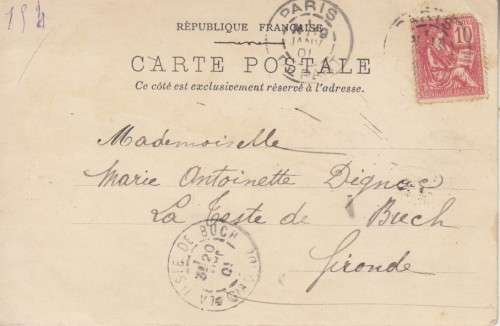 154
RÉPUBLIQUE FRANÇAISE
CARTE POSTALE
Ce côté est exclusivement réservé à l'adresse.
PARIS
JANV
01
10
Mademoiselle
Marie Antoinette
La Teste de Buch
Gironde
LA TESTE DE BUCH
20
01